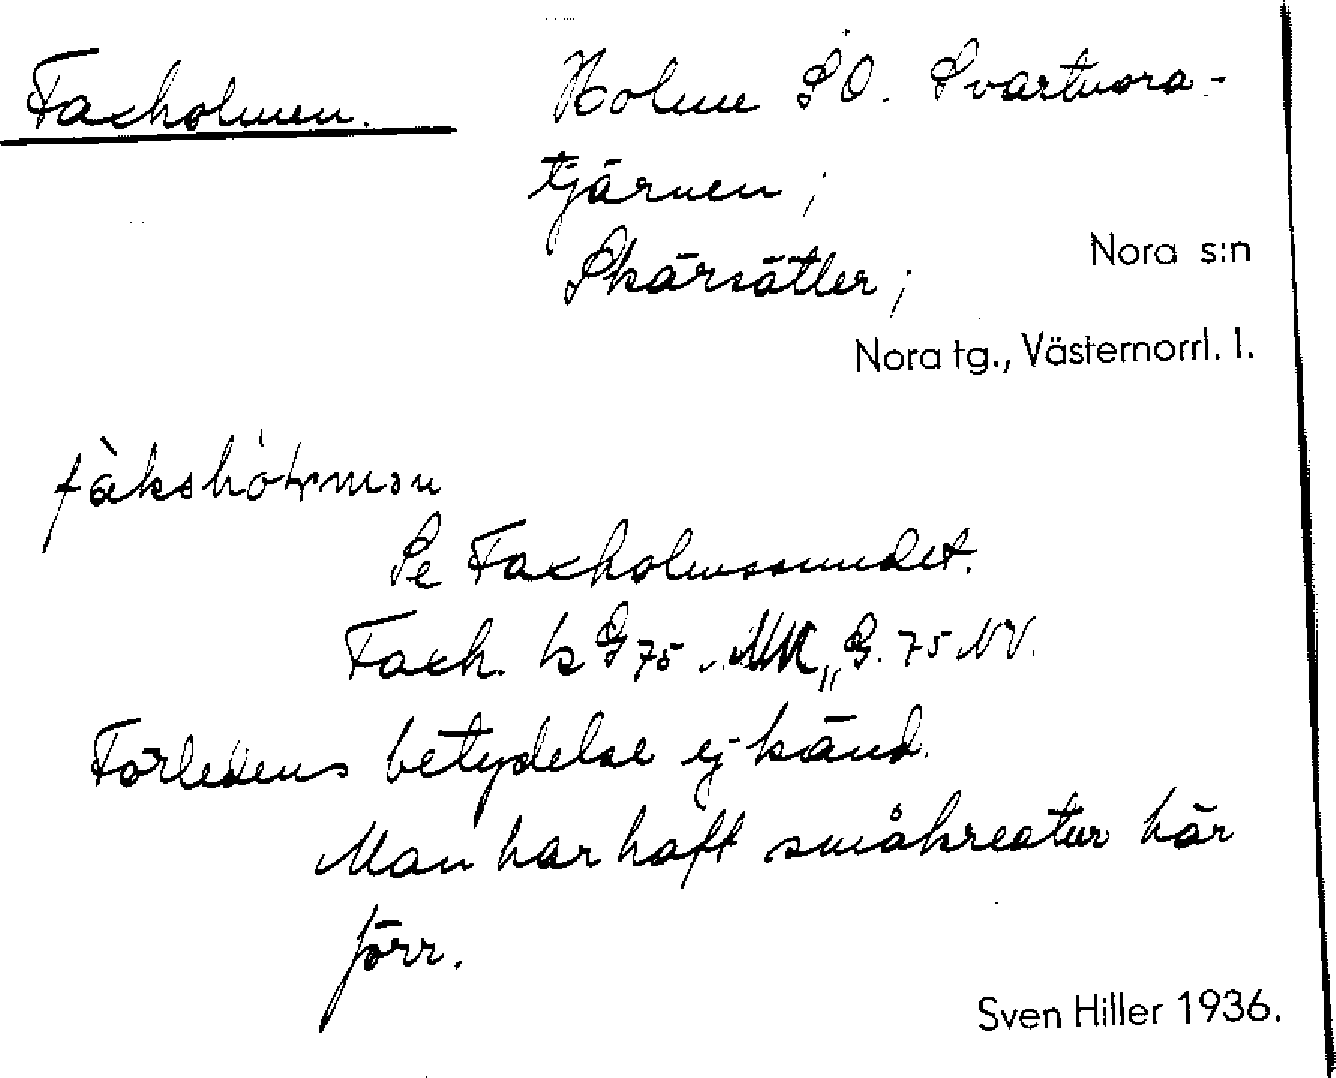 Faxholmen. Holme SO. Svartnora-
tjärnen;
Skärsätter;
Nora s:n
Nora tg., Västernorrl. l.
Se Faxholmssundet.
Faxh. k G 75 NV.
Förledens betydelse ej känd.
Man har haft småkreatur här
förr.
Sven Hiller 1936.